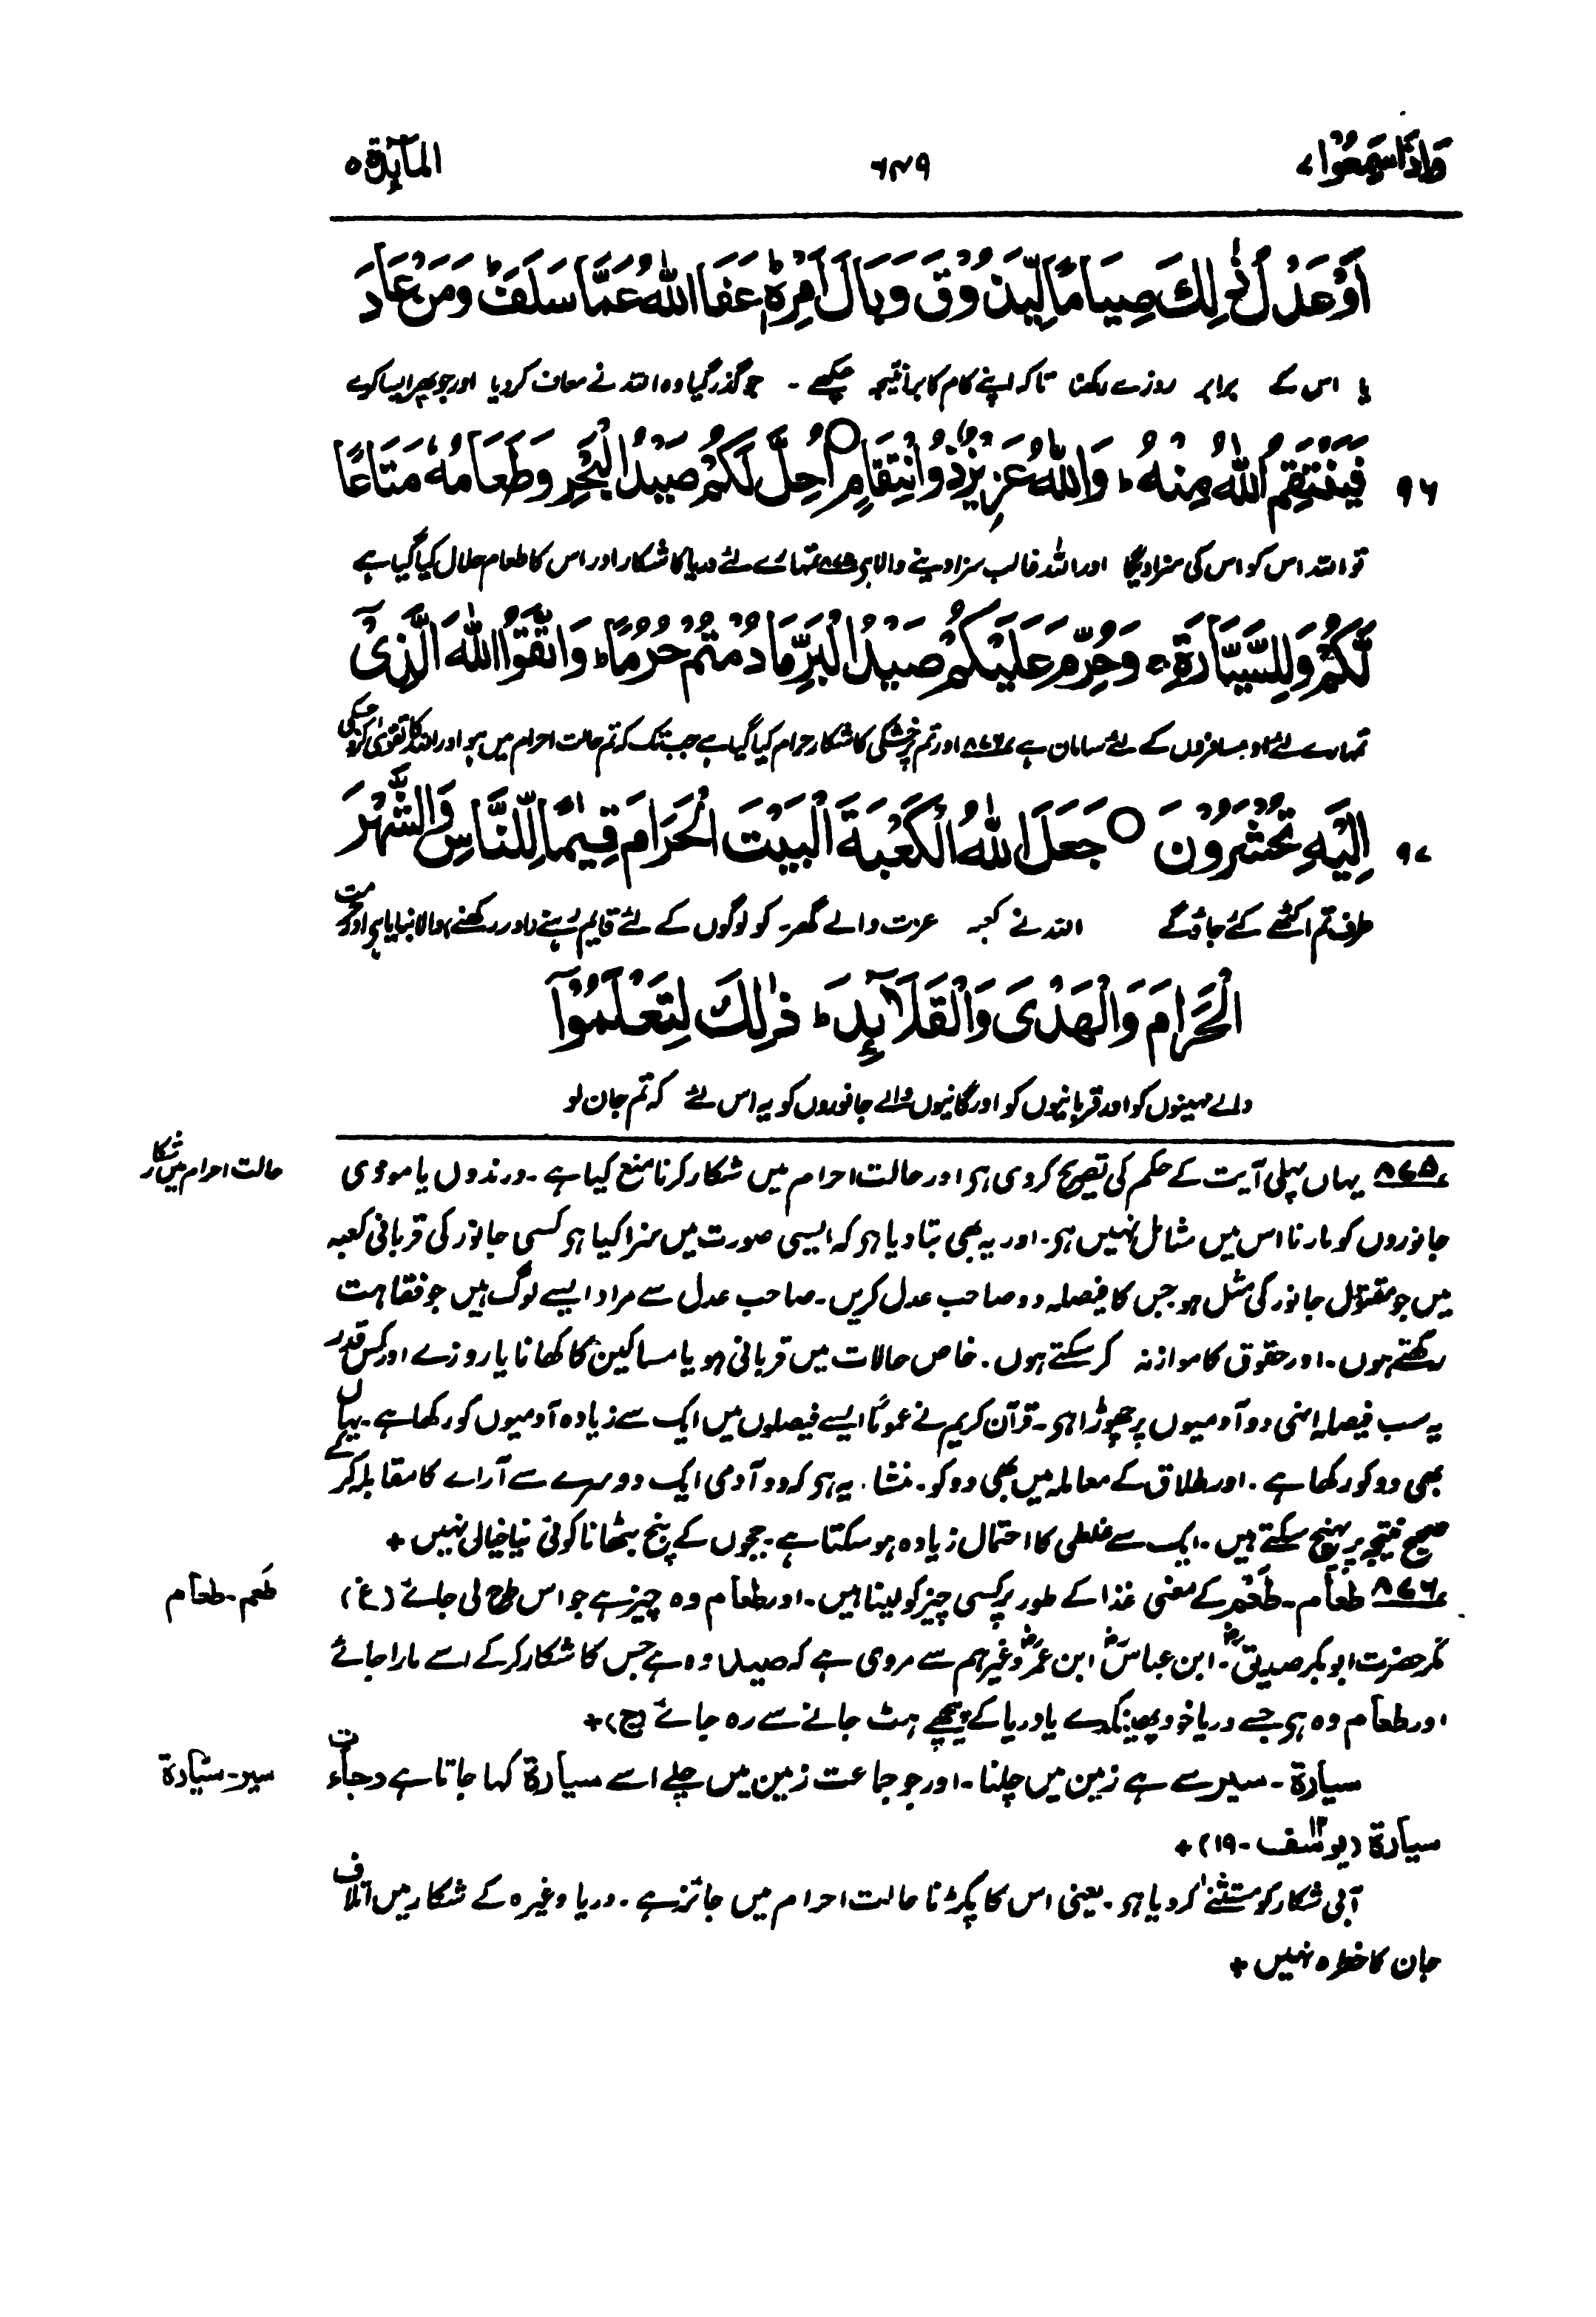 وَاِذَا سَمِعُوْا ۷ ۶۴۹ المآئدۃ ۵
اَوْ عَدْلُ ذٰلِكَ صِيَامًا لِّيَذُوْقَ وَبَالَ اَمْرِهٖ ؕ عَفَا اللّٰهُ عَمَّا سَلَفَ ؕ وَمَنْ عَادَ
یا اس کے برابر روزے رکھنا تاکہ اپنے کام کا برا نتیجہ چکھے ۔ جو گذر گیا وہ اللہ نے معاف کر دیا اور جو پھر ایسا کرے
۹۶ فَيَنْتَقِمُ اللّٰهُ مِنْهُ ؕ وَاللّٰهُ عَزِيْزٌ ذُوانْتِقَامٍ ○ اُحِلَّ لَكُمْ صَيْدُ الْبَحْرِ وَطَعَامُهٗ مَتَاعًا
تو اللہ اس کو اس کی سزا دیگا اور اللہ غالب سزا دینے والا ہے ۸۷۵ تمہارے لئے دریا کا شکار اور اس کا طعام حلال کیا گیا ہے
لَّكُمْ وَلِلسَّيَّارَةِ ۚ وَحُرِّمَ عَلَيْكُمْ صَيْدُ الْبَرِّ مَا دُمْتُمْ حُرُمًا ؕ وَاتَّقُوا اللّٰهَ الَّذِىْٓ
تمہارے لئے اور مسافروں کے لئے سامان ہے ۸۷۶ اور تم پر خشکی کا شکار حرام کیا گیا ہے جب تک کہ تم حالت احرام میں ہو اور اللہ کا تقوٰی کرو جسکی
۹۷ اِلَيْهِ تُحْشَرُوْنَ ○ جَعَلَ اللّٰهُ الْكَعْبَةَ الْبَيْتَ الْحَرَامَ قِيٰمًا لِّلنَّاسِ وَالشَّهْرَ
طرف تم اکٹھے کئے جاؤ گے اللہ نے کعبہ عزت والے گھر کو لوگوں کے لئے قایم رہنے (اور رکھنے) والا بنایا ہے اور حرمت
الْحَرَامَ وَالْهَدْىَ وَالْقَلَآئِدَ ؕ ذٰلِكَ لِتَعْلَمُوْٓا
والے مہینوں کو اور قربانیوں کو اور گانیوں والے جانوروں کو یہ اس لئے کہ تم جان لو
حالت احرام میں شکار
۸۷۵ یہاں پہلی آیت کے حکم کی تصریح کر دی ہے اور حالت احرام میں شکار کرنا منع کیا ہے ۔ درندوں یا موذی
جانوروں کو مارنا اس میں شامل نہیں ہے ۔ اور یہ بھی بتا دیا ہے کہ ایسی صورت میں سزا کیا ہے کسی جانور کی قربانی کعبہ
میں جو مقتول جانور کی مثل ہو جس کا فیصلہ دو صاحب عدل کریں ۔ صاحب عدل سے مراد ایسے لوگ ہیں جو فقاہت
رکھتے ہوں ۔ اور حقوق کا موازنہ کر سکتے ہوں ۔ خاص حالات میں قربانی ہو یا مساکین کا کھانا یا روزے اور کس قدر
یہ سب فیصلہ انہی دو آدمیوں پر چھوڑا ہے ۔ قرآن کریم نے عمومًا ایسے فیصلوں میں ایک سے زیادہ آدمیوں کو رکھا ہے ۔ یہاں
بھی دو کو رکھا ہے ۔ اور طلاق کے معاملہ میں بھی دو کو ۔ منشا یہ ہے کہ دو آدمی ایک دوسرے سے آراے کا مقابلہ کر کے
صحیح نتیجہ پر پہنچ سکتے ہیں ۔ ایک سے غلطی کا احتمال زیادہ ہو سکتا ہے ۔ ججوں کے پنچ بٹھانا کوئی نیا خیال نہیں +
طعم ۔ طعام
۸۷۶ طعام ۔ طَعْم کے معنی غذا کے طور پر کسی چیز کو لینا ہیں ۔ اور طعام وہ چیز ہے جو اس طرح لی جائے (غ)
مگر حضرت ابوبکر صدیقؓ ۔ ابن عباسؓ ابن عمرؓ وغیرہم سے مروی ہے کہ صید وہ ہے جس کا شکار کر کے اسے مارا جائے
اور طعام وہ ہے جسے دریا خود پھینکدے یا دریا کے پیچھے ہٹ جانے سے رہ جائے (ج) +
سیر ۔ سیّارۃ
سیارۃ ۔ سیر سے ہے زمین میں چلنا ۔ اور جو جماعت زمین میں چلے اسے سیارۃ کہا جاتا ہے (جاءت
سیارۃ (یوسف ۱۲ ۔ ۱۹) +
آبی شکار کو مستثنےٰ کر دیا ہے ۔ یعنی اس کا پکڑنا حالت احرام میں جائز ہے ۔ دریا وغیرہ کے شکار میں اتلاف
جان کا خطرہ نہیں +